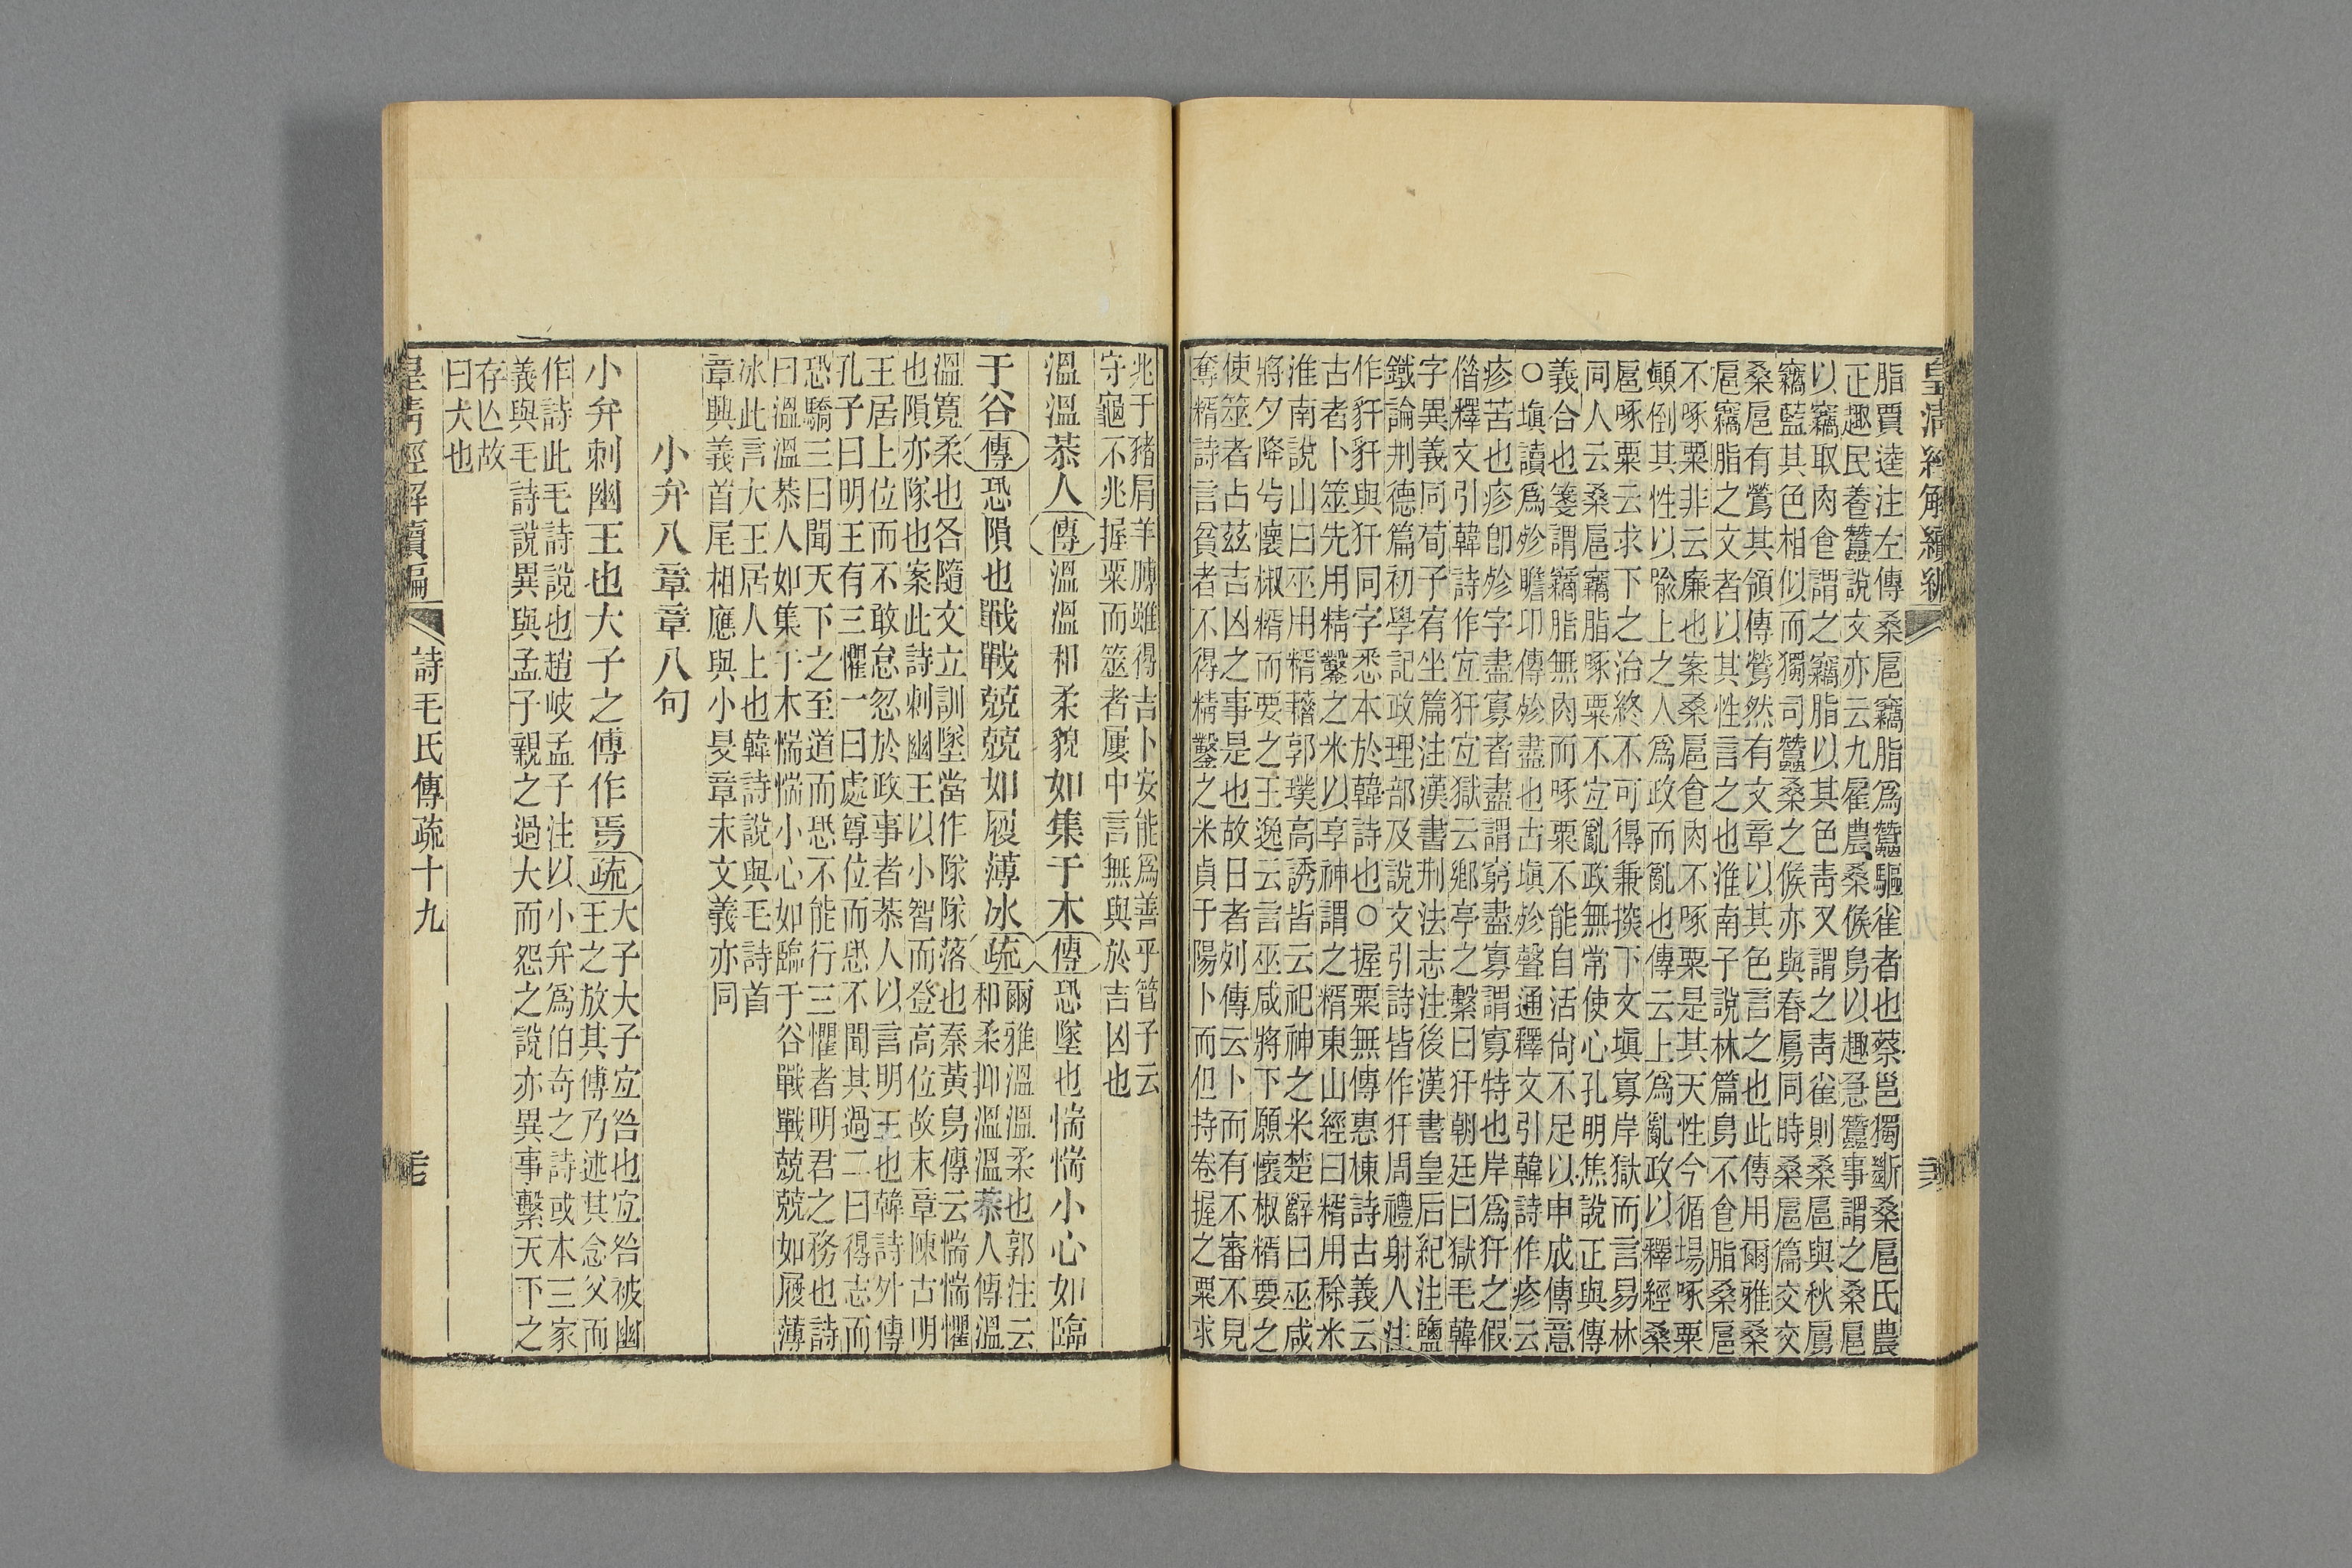 皇清經解續編
脂賈逵注左傳桑扈竊脂爲蠶驅雀者也蔡邕獨斷桑扈氏農
正趣民養蠶說文亦云九雇農桑候鳥以趣急蠶事謂之桑扈
以竊取肉食謂之竊脂以其色靑又謂之靑雀則桑扈與秋鳸
竊藍其色相似而獨司蠶桑之候亦與春鳸同時桑扈篇交交
桑扈有鶯其領傳鶯然有文章以其色言之也此傳用爾雅桑
扈竊脂之文者以其性言之也淮南子說林篇鳥不食脂桑扈
不啄粟非云廉也案桑扈食肉不啄粟是其天性今循場啄粟
顚倒其性以喩上之人爲政而亂也傳云上爲亂政以釋經桑
扈啄粟云求下之治終不可得兼探下文塡寡岸獄而言易林
同人云桑扈竊脂啄粟不宐亂政無常使心孔明焦說正與傳
義合也箋謂竊脂無肉而啄粟不能自活尙不足以申成傳意
○塡讀爲殄瞻卬傳殄盡也古塡殄聲通釋文引韓詩作疹云
疹苦也疹卽殄字盡寡者盡謂窮盡寡謂寡特也岸爲犴之假
偕釋文引韓詩作宐犴宐獄云鄉亭之繫曰犴朝廷曰獄毛韓
字異義同荀子宥坐篇注漢書刑法志注後漢書皇后紀注鹽
鐵論刑德篇初學記政理部及說文引詩皆作犴周禮射人注
作豻豻與犴同字悉本於韓詩也○握粟無傳惠棟詩古義云
古者卜筮先用精鑿之米以享神謂之糈東山經曰糈用稌米
淮南說山曰巫用糈藉郭璞高誘皆云祀神之米楚辭曰巫咸
將夕降兮懷椒糈而要之王逸云言巫咸將下願懷椒糈要之
使筮者占茲吉凶之事是也故日者列傳云卜而有不審不見
奪糈詩言貧者不得精鑿之米貞于陽卜而但持卷握之粟求
兆于豬肩羊膊雖得吉卜安能爲善乎管子云
守龜不兆握粟而筮者屢中言無與於吉凶也
溫溫恭人傳溫溫和柔貌如集于木傳恐墜也惴惴小心如臨
于谷傳恐隕也戰戰兢兢如履薄冰疏爾雅溫溫柔也郭注云
和柔抑溫溫恭人傳溫
溫寬柔也各隨文立訓墜當作隊隊落也秦黃鳥傳云惴惴懼
也隕亦隊也案此詩刺幽王以小智而登高位故末章陳古明
王居上位而不敢怠忽於政事者恭人以言明王也韓詩外傳
孔子曰明王有三懼一曰處尊位而恐不聞其過二曰得志而
恐驕三曰聞天下之至道而恐不能行三懼者明君之務也詩
曰溫溫恭人如集于木惴惴小心如臨于谷戰戰兢兢如履薄
冰此言大王居人上也韓詩說與毛詩首
章興義首尾相應與小旻章末文義亦同
小弁八章章八句
小弁刺幽王也大子之傅作焉疏大子大子宐咎也宐咎被幽
王之放其傅乃述其念父而
作詩此毛詩說也趙岐孟子注以小弁爲伯奇之詩或本三家
義與毛詩說異與孟子親之過大而怨之說亦異事繫天下之
存亾故
曰大也
皇淸經解續編
詩毛氏傳疏十九